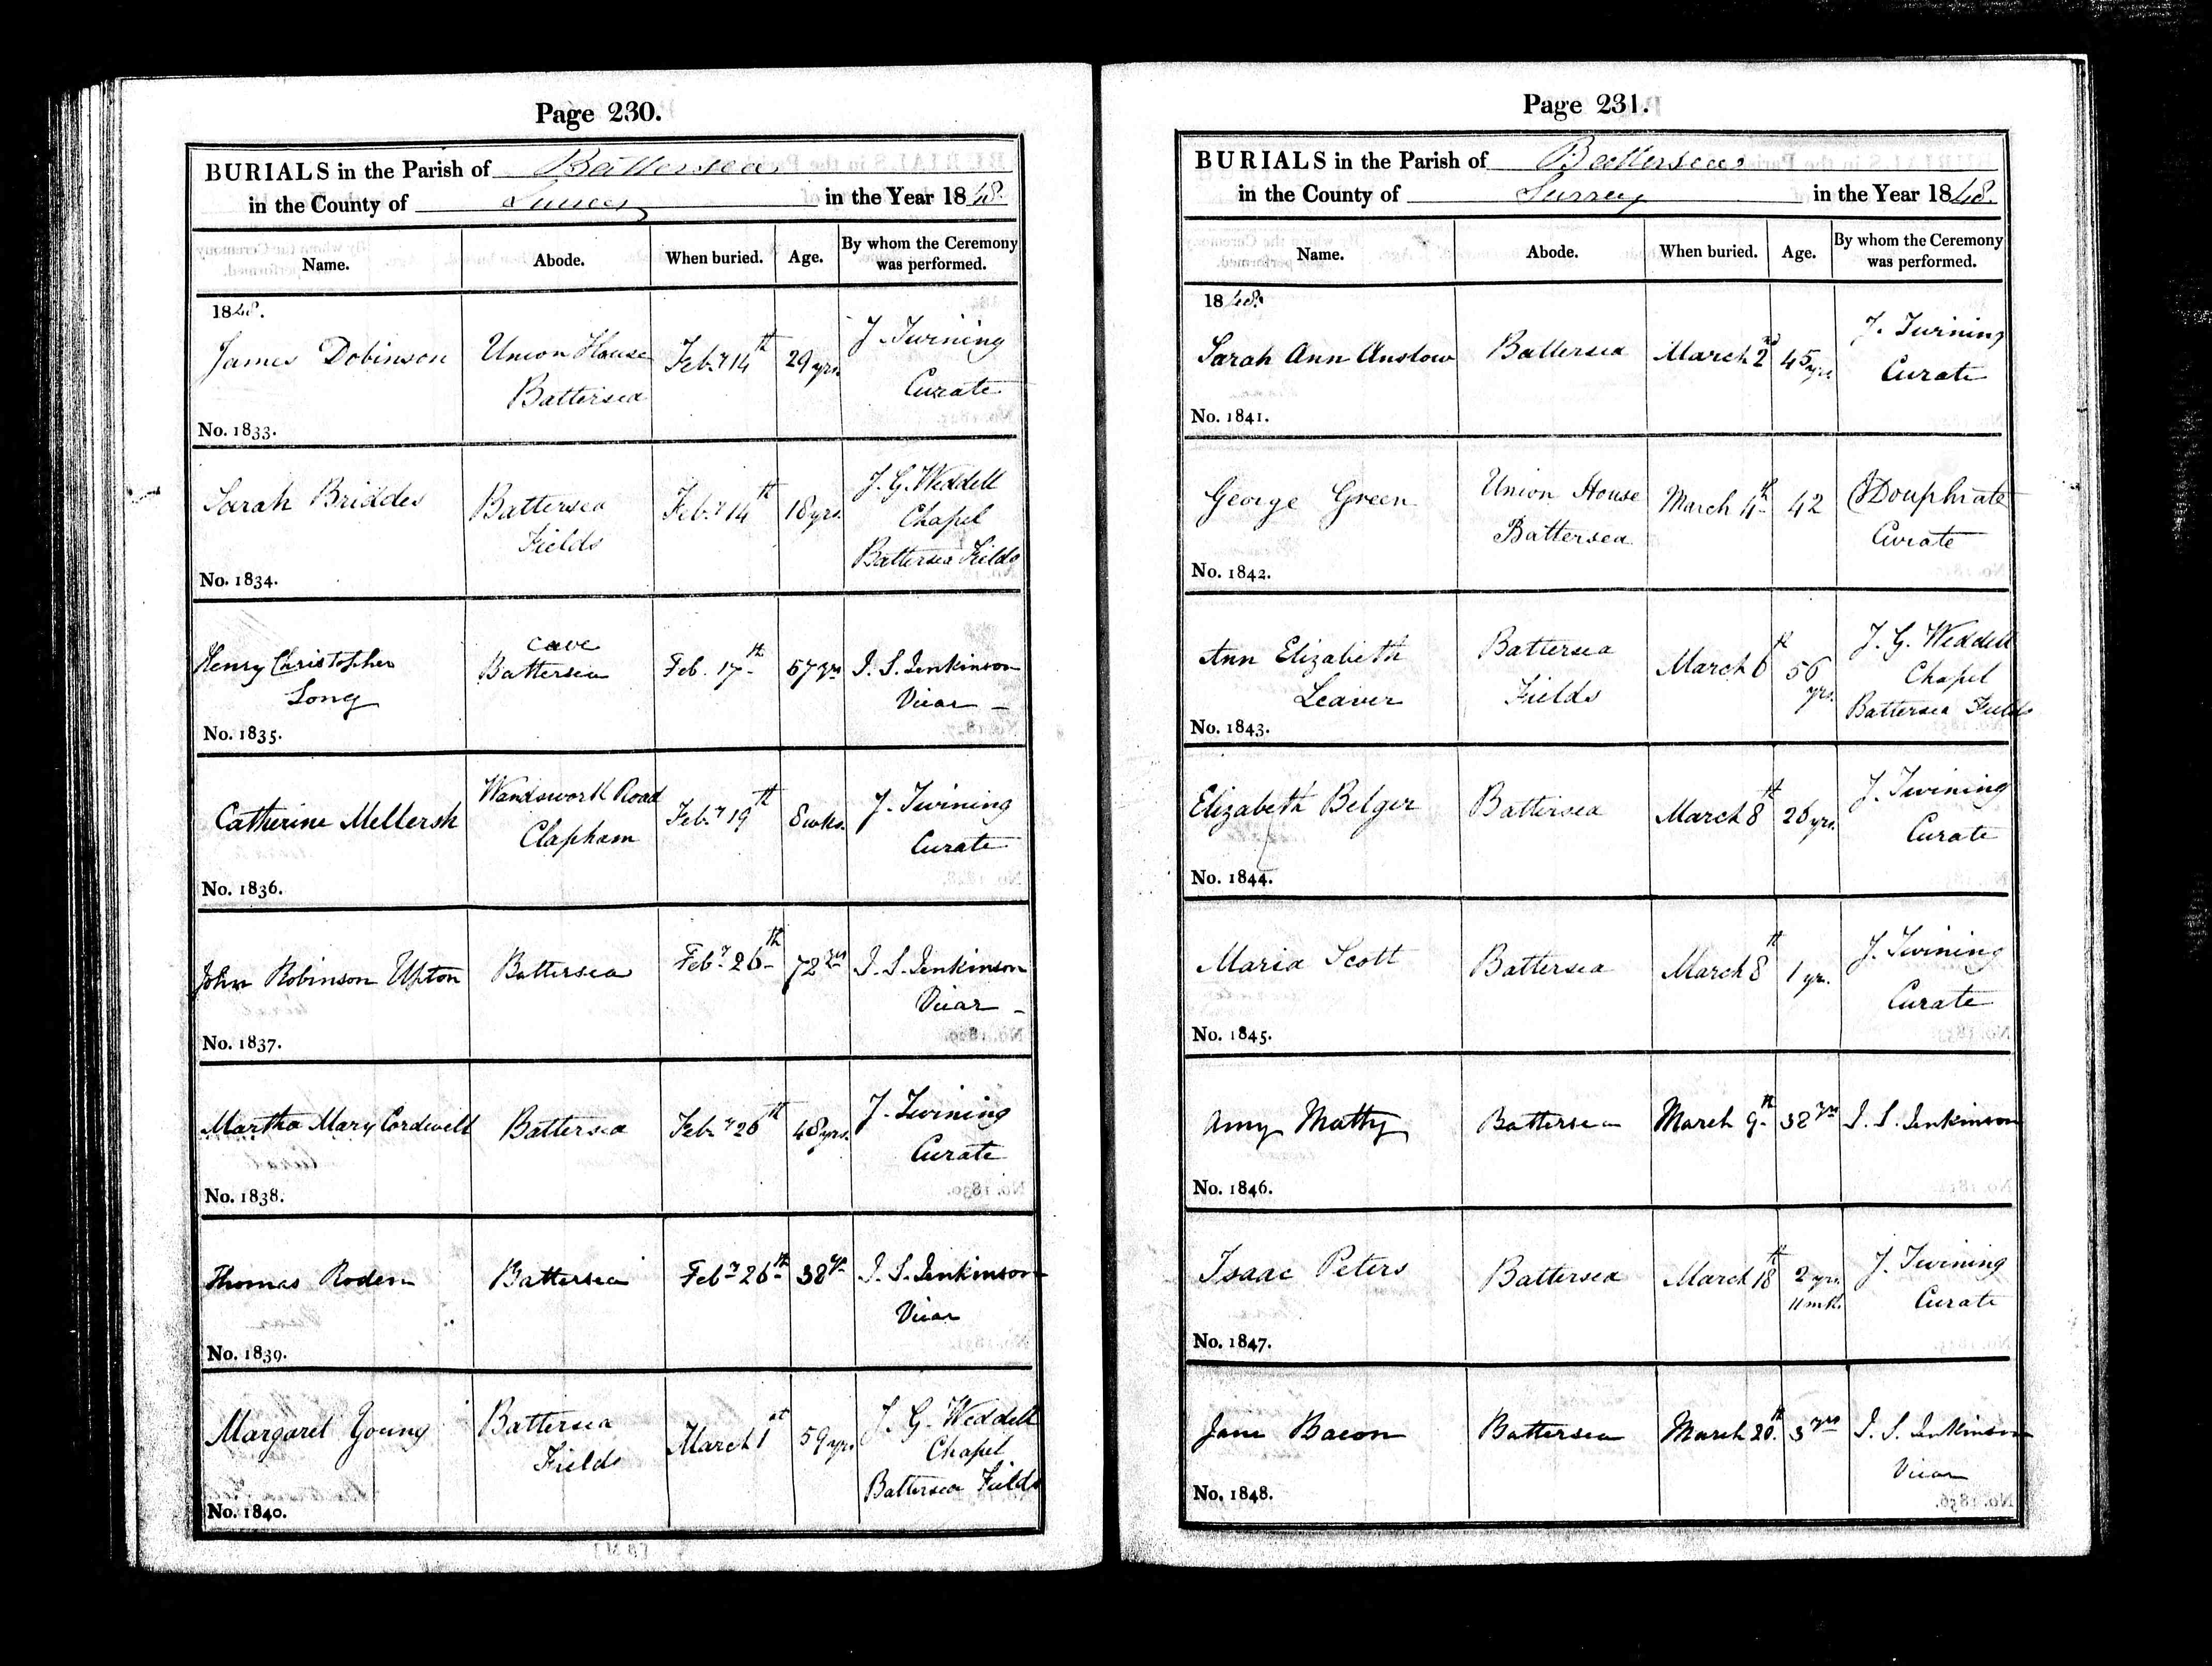 Page 230.
BURIALS in the Parish of Battersea
in the County of Surrey in the Year 1848.
Name. Abode. When buried. Age. By whom the Ceremony was performed.
1848.
James Dobinson Union House Feby 14th 29 yrs. J. Twining
Battersea Curate
No. 1833.
Sarah Briddes Battersea Feby 14th 18 yrs. J. G. Weddell
Fields Chapel
Battersea Fields
No. 1834.
Henry Christopher cave
Long Battersea Feb. 17th 57 yrs J. S. Jenkinson
Vicar
No. 1835.
Catherine Mellersh Wandsworth Road Feby 19th 8 wks. J. Twining
Clapham Curate
No. 1836.
John Robinson Upton Battersea Feby 26th 72 yrs J. S. Jenkinson
Vicar
No. 1837.
Martha Mary Cordwell Battersea Feby 26th 48 yrs. J. Twining
Curate
No. 1838.
Thomas Roden Battersea Feby 26th 38 yrs J. S. Jenkinson
Vicar
No. 1839.
Margaret Young Battersea March 1st 59 yrs J. G. Weddell
Fields Chapel
Battersea Fields
No. 1840.
Page 231.
BURIALS in the Parish of Battersea
in the County of Surrey in the Year 1848.
Name. Abode. When buried. Age. By whom the Ceremony was performed.
1848.
Sarah Ann Anslow Battersea March 2nd 45 yrs J. Twining
Curate
No. 1841.
George Green Union House March 4th 42
Battersea Curate
No. 1842.
Ann Elizabeth Battersea March 6th 56 yrs. J. G. Weddell
Leaver Fields Chapel
Battersea Fields
No. 1843.
Elizabeth Belger Battersea March 8th 26 yrs. J. Twining
Curate
No. 1844.
Maria Scott Battersea March 8th 1 yr. J. Twining
Curate
No. 1845.
Amy Matty Battersea March 9th 38 yrs J. S. Jenkinson
No. 1846.
Isaac Peters Battersea March 18th 2 yrs. J. Twining
11 mth. Curate
No. 1847.
Jane Bacon Battersea March 20th 3 yrs J. S. Jenkinson
Vicar
No. 1848.